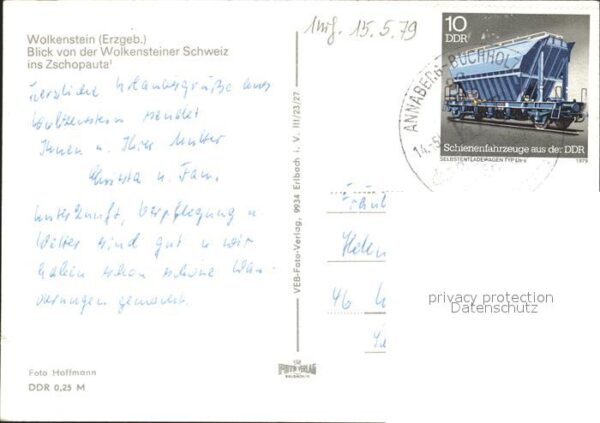 Wolkenstein (Erzgeb.)
Blick von der Wolkensteiner Schweiz
ins Zschopautal
Herzliche Urlaubsgrüße aus
Wolkenstein sendet
Ihnen u. Ihrer Mutter
Christa u. Fam.
Unterkunft, Verpflegung u.
Wetter sind gut u. wir
haben schon schöne Wan-
derungen gemacht.
Foto Hoffmann
DDR 0,25 M
VEB-Foto-Verlag, 9934 Erlbach i. V. III/23/27
FOTO VERLAG
15. 5. 79
10
DDR
Schienenfahrzeuge aus der DDR
SELBSTENTLADEWAGEN TYP
1979
ANNABERG-BUCHHOLZ
14.-5
Fräul
Helen
46
privacy protection
Datenschutz